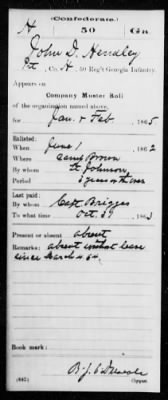 (Confederate.)
H 50 Ga.
John D. Hendley
Pt, Co. H, 50 Reg't Georgia Infantry.
Appears on
Company Muster Roll
of the organization named above,
for Jan. & Feb, 1865
Enlisted:
When June 1 1862
Where Camp Brown
By whom Lt Johnson
Period 3 years or the war
Last paid:
By whom Capt Briggs
To what time Oct. 31 1863
Present or absent absent
Remarks: absent without leave
since March 4 64
Book mark:
(642) Copyist.